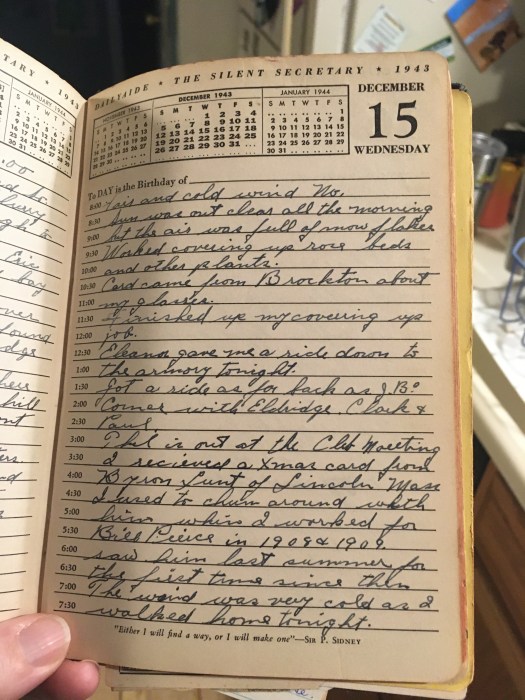 TARY ★ 1943
DAILYAIDE ★ THE SILENT SECRETARY ★ 1943
JANUARY 1944
NOVEMBER 1943
DECEMBER 1943
S M T W T F S
1 2 3 4
5 6 7 8 9 10 11
12 13 14 15 16 17 18
19 20 21 22 23 24 25
26 27 28 29 30 31
JANUARY 1944
S M T W T F S
1
2 3 4 5 6 7 8
9 10 11 12 13 14 15
16 17 18 19 20 21 22
23 24 25 26 27 28 29
30 31
DECEMBER
15
WEDNESDAY
To DAY is the Birthday of
8:00 Fair and cold wind No.
8:30 Sun was out clear all the morning
9:00 but the air was full of snow flakes
9:30 Worked covering up rose beds
10:00 and other plants.
10:30 Card came from Brockton about
11:00 my glasses.
11:30 Finished up my covering up
12:00 job.
12:30 Eleanor gave me a ride down to
1:00 the armory tonight.
1:30 Got a ride as far back as J Bs
2:00 Corner with Eldridge, Clark &
2:30 Paul.
3:00 Phil is out at the Club Meeting
3:30 I recieved a Xmas card from
4:00 Byron Lunt of Lincoln Mass
4:30 I used to chum around with
5:00 him when I worked for
5:30 Bill Pierce in 1908 & 1909
6:00 saw him last summer for
6:30 the first time since then
7:00 The wind was very cold as I
7:30 walked home tonight.
"Either I will find a way, or I will make one"—SIR P. SIDNEY